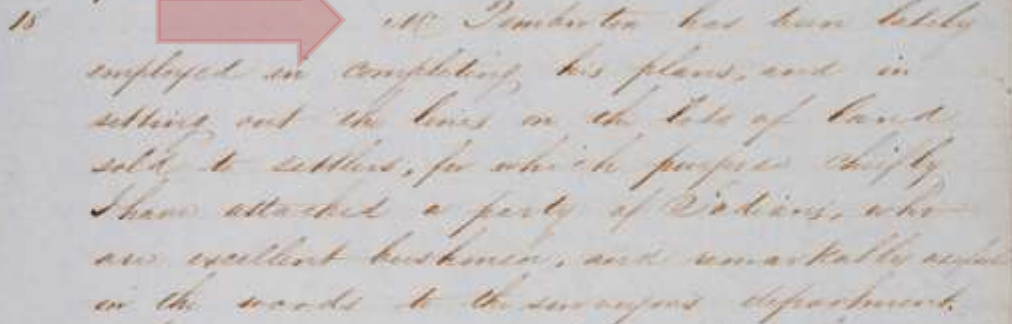 18 Mr Pemberton has been lately
employed in completing his plans, and in
setting out the lines on the lots of land
sold to settlers, for which purpose chiefly
I have attached a party of Indians, who
are excellent bushmen, and remarkably useful
in the woods to the surveyors department.